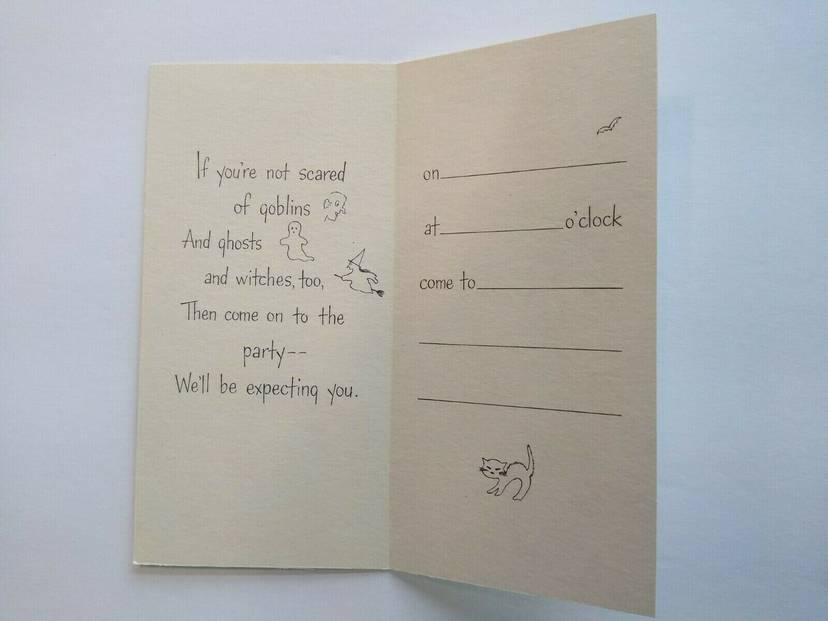 If you're not scared
of goblins
And ghosts
and witches, too,
Then come on to the
party--
We'll be expecting you.
on
at o'clock
come to